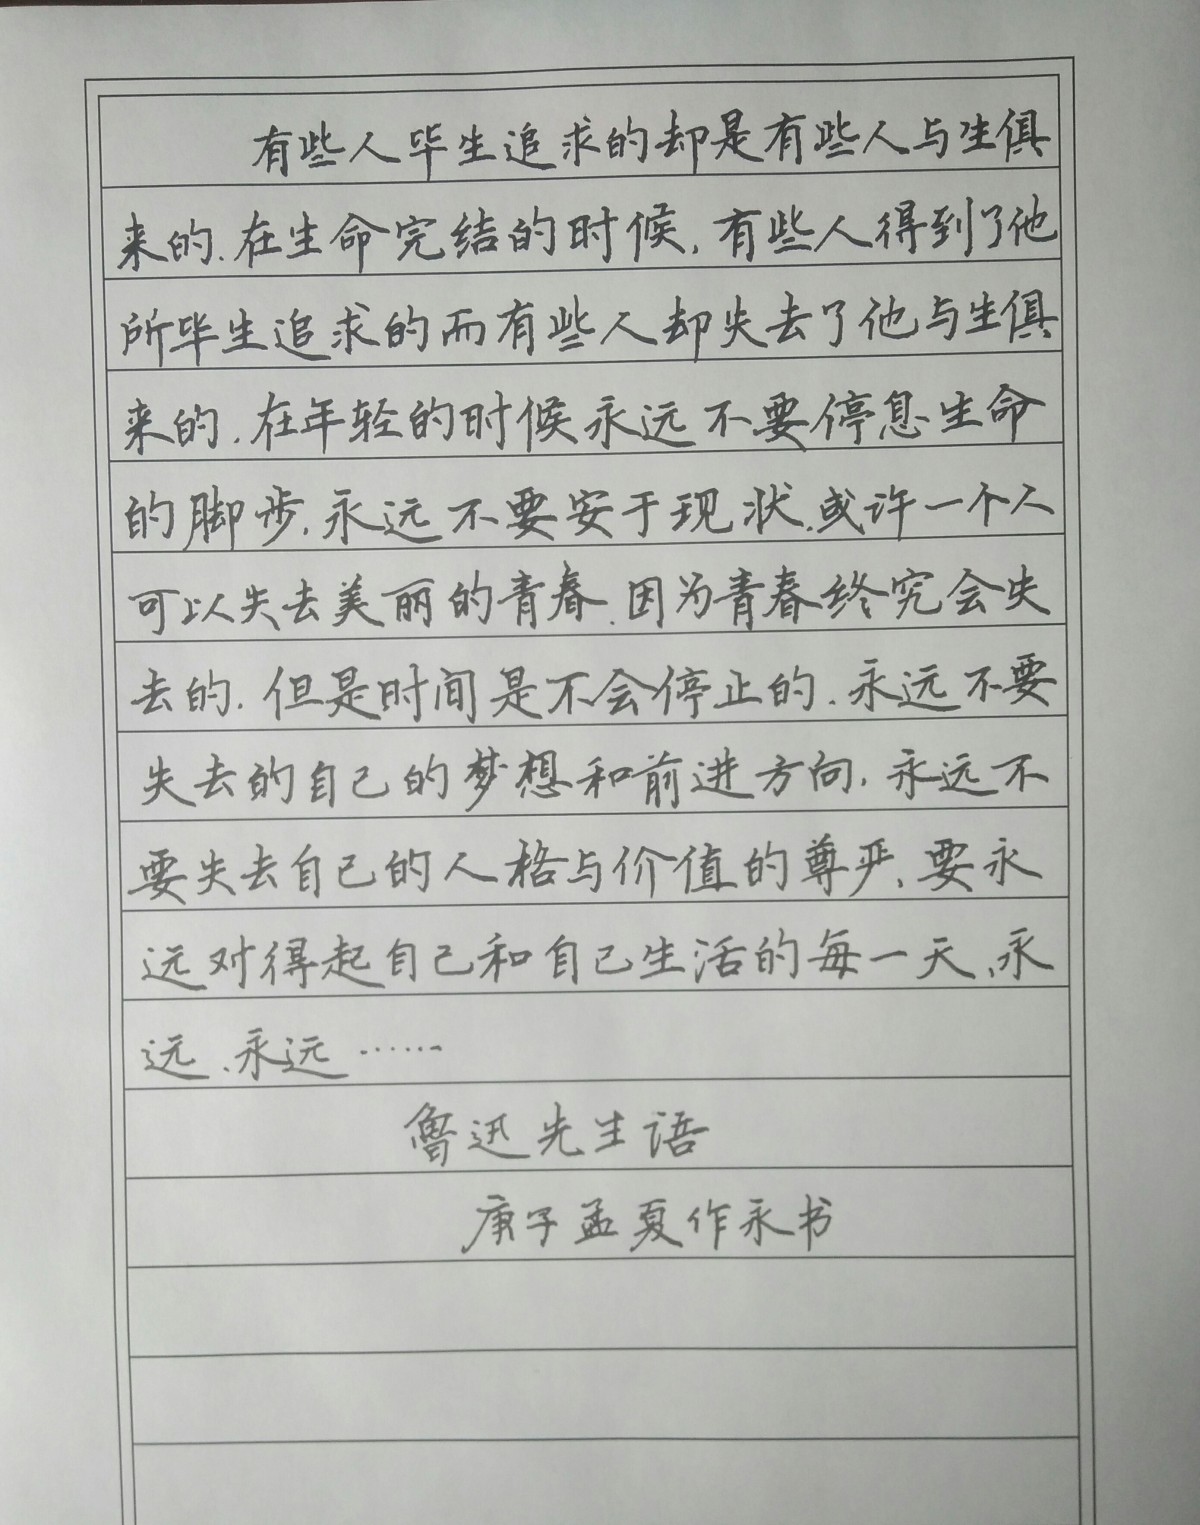 有些人毕生追求的却是有些人与生俱
来的.在生命完结的时候,有些人得到了他
所毕生追求的而有些人却失去了他与生俱
来的.在年轻的时候永远不要停息生命
的脚步,永远不要安于现状.或许一个人
可以失去美丽的青春.因为青春终究会失
去的.但是时间是不会停止的.永远不要
失去的自己的梦想和前进方向,永远不
要失去自己的人格与价值的尊严、要永
远对得起自己和自己生活的每一天、永
远、永远……
鲁迅先生语
庚子孟夏作永书